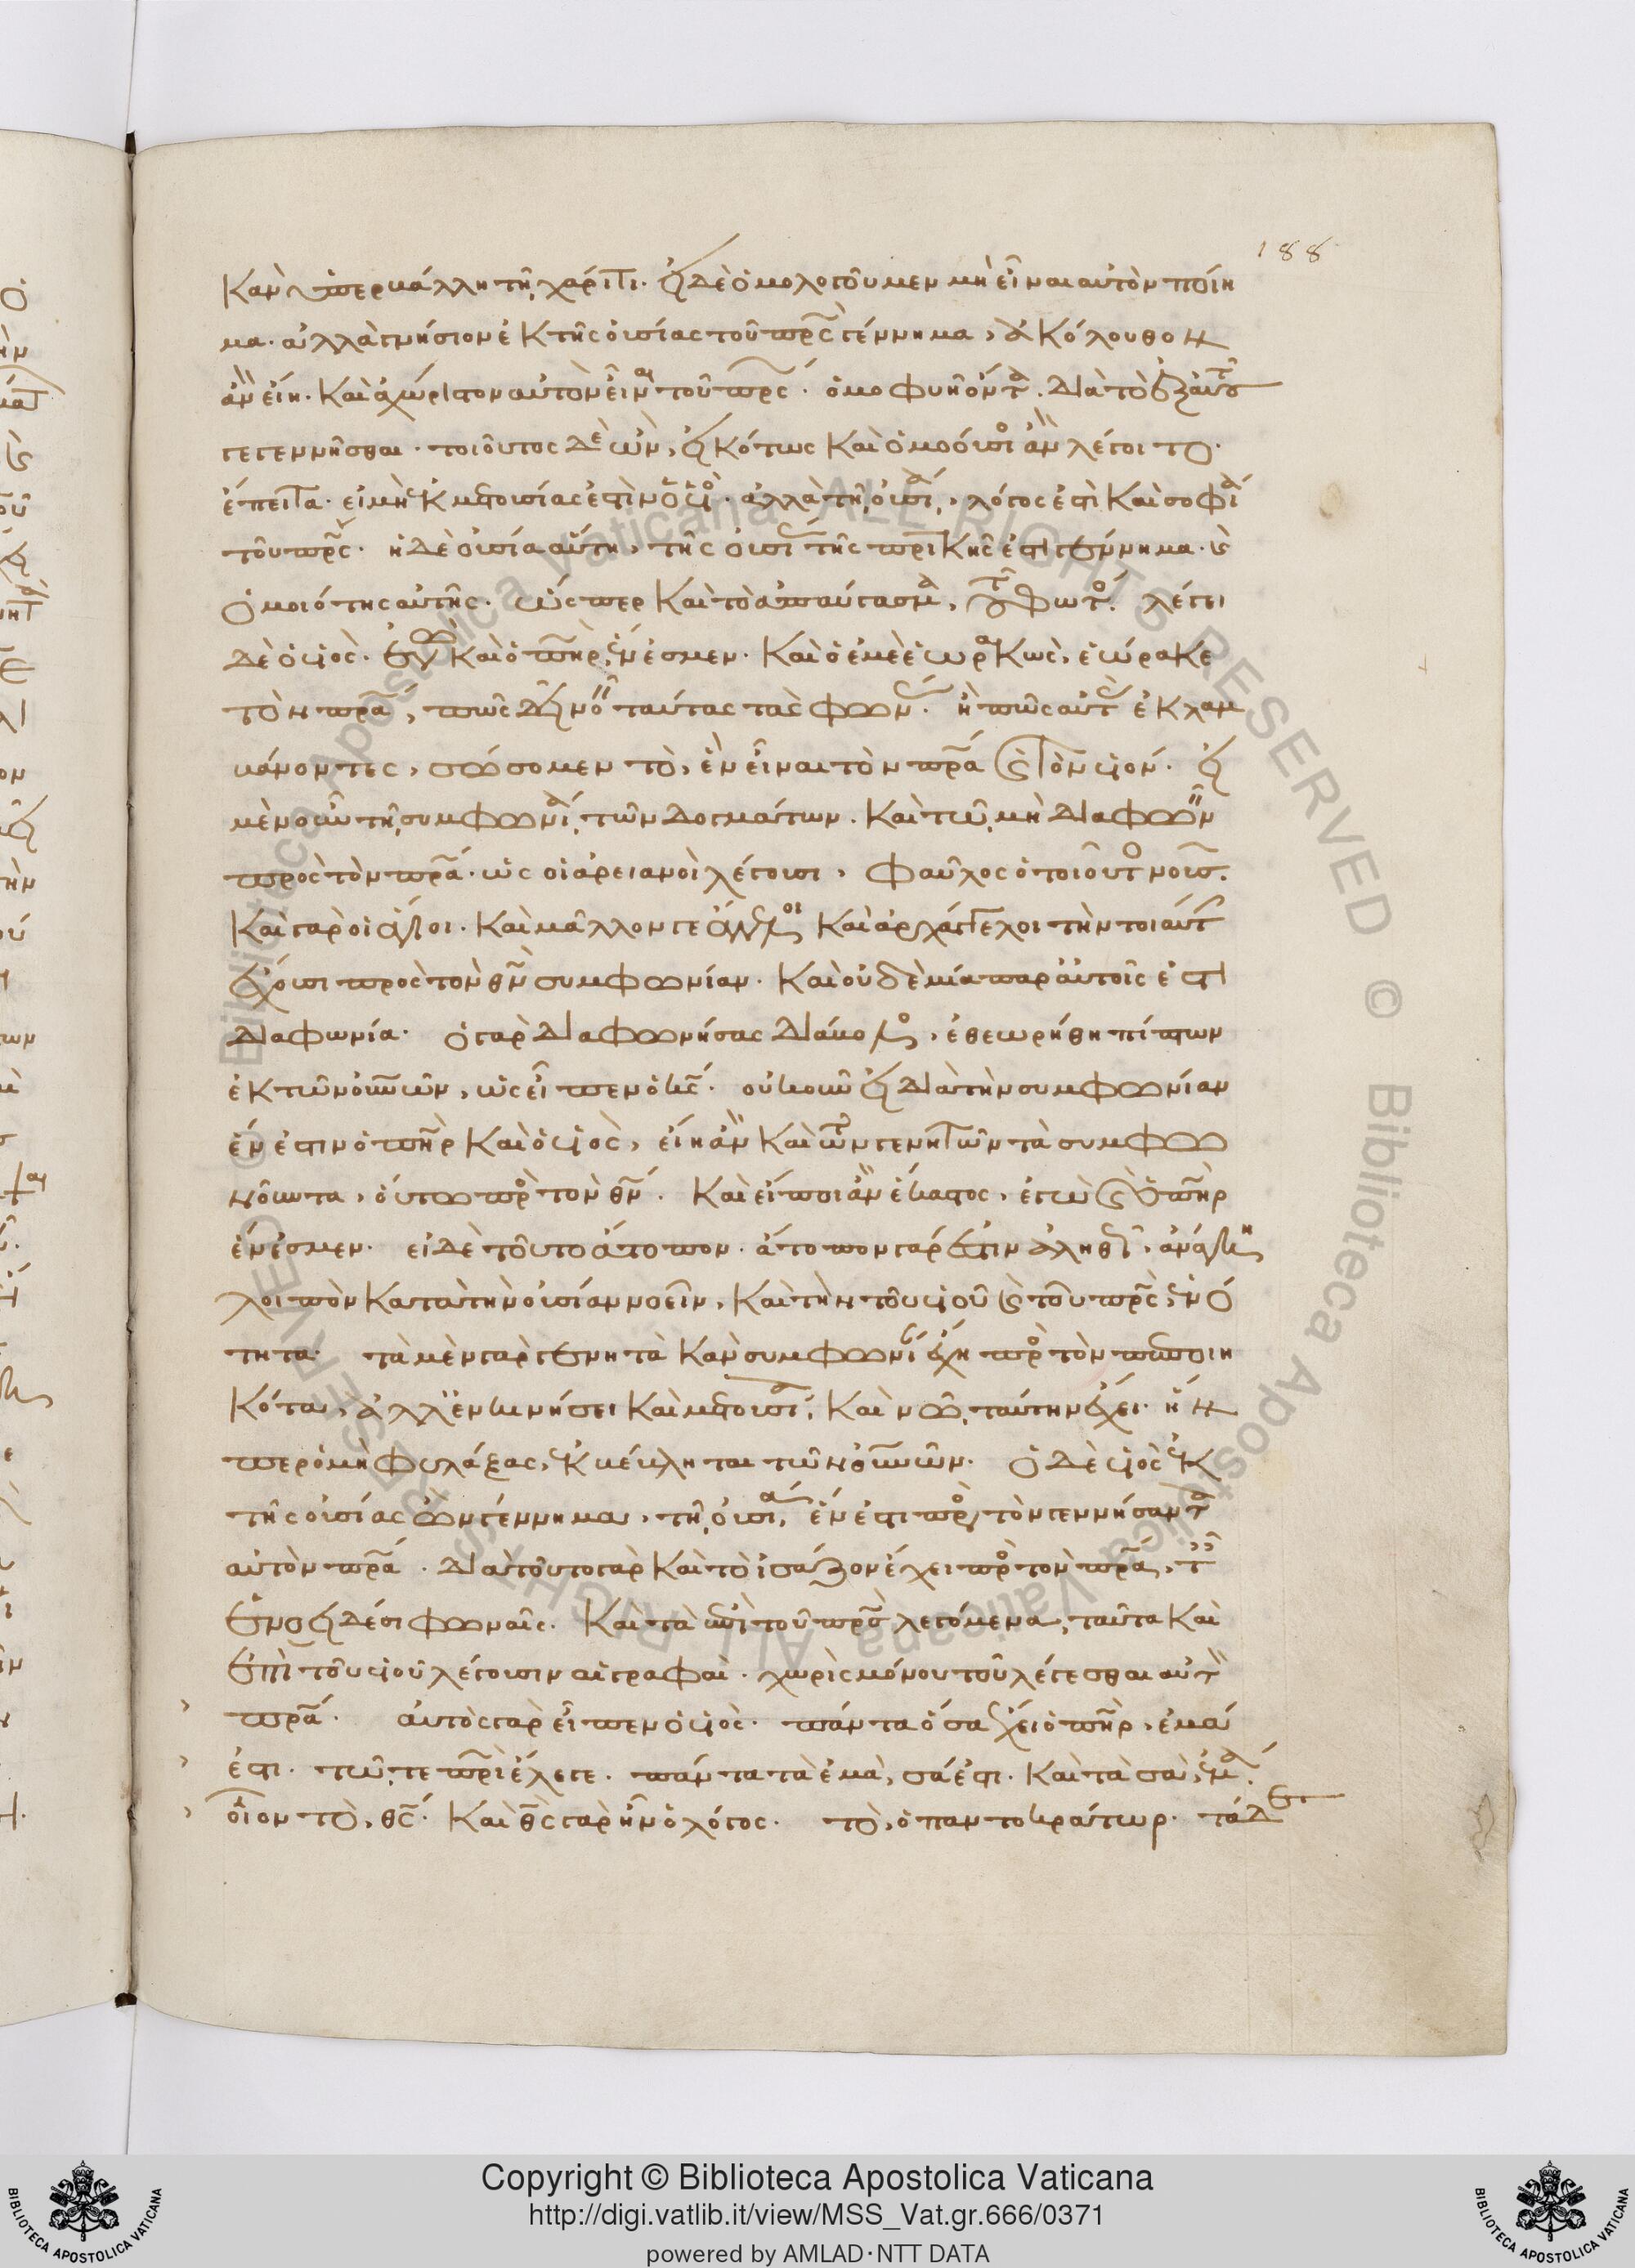 188
κἂν ὑπερβάλλη τῆ χάριτι. εἰ δὲ ὁμολογοῦμεν μὴ εἶναι αὐτὸν ποίη
μα. ἀλλὰ γνήσιον ἐκ τῆς οὐσίας τοῦ πρς γέννημα, ἀκόλουθον
ἂν εἴη. καὶ ἀχώριστον αὐτὸν εἶναι τοῦ πρς. ὁμοφυῆ ὄντα. διὰ τὸ ἐξ αὐτοῦ
γεγεννῆσθαι. τοιοῦτος δὲ ὢν, εἰκότως καὶ ὁμοούσιος ἂν λέγοιτο.
ἔπειτα. εἰ μὴ ἐκ μετουσίας ἐστὶν ὁ υἱός. ἀλλὰ τῆ οὐσία, λόγος ἐστὶ καὶ σοφία
τοῦ πρς. ἡ δὲ οὐσία αὕτη, τῆς οὐσίας τῆς πρικῆς ἐστι γέννημα. καὶ
ὁμοιότης αὐτῆς. ὥσπερ καὶ τὸ ἀπαύγασμα, τοῦ φωτός. λέγει
δὲ ὁ υἱὸς. ἐγὼ καὶ ὁ πηρ, ἕν ἐσμεν. καὶ ὁ ἐμὲ ἑωρακὼς, ἑώρακε
τὸν πρα, πῶς δεῖ νοεῖν ταύτας τὰς φωνάς. ἢ πῶς αὐτὰς ἐκλαμ
βάνοντες, σώσομεν τὸ, ἓν εἶναι τὸν πρα καὶ τὸν υἱόν. εἰ
μὲν οὖν τῆ συμφωνία τῶν δογμάτων. καὶ τῶ μὴ διαφωνεῖν
πρὸς τὸν πρα. ὡς οἱ ἀρειανοὶ λέγουσι, φαῦλος ὁ τοιοῦτος νοῦς.
καὶ γὰρ οἱ ἅγιοι. καὶ μᾶλλόν γε ἄγγελοι καὶ ἀρχάγγελοι τὴν τοιαύτην
ἔχουσι πρὸς τὸν θν συμφωνίαν. καὶ οὐδὲ μία παρ' αὐτοῖς ἐστι
διαφωνία. ὁ γὰρ διαφωνήσας διάβολος, ἐθεωρήθη πίπτων
ἐκ τῶν οὐνῶν, ὡς εἶπεν ὁ κς. οὐκοῦν εἰ διὰ τὴν συμφωνίαν
ἕν ἐστιν ὁ πηρ καὶ ὁ υἱὸς, εἴη ἂν καὶ τῶν γενητῶν τὰ συμφω
νοῦντα, οὕτω πρὸς τὸν θν. καὶ εἴποι ἂν ἕκαστος, ἐγὼ καὶ ὁ πηρ
ἕν ἐσμεν. εἰ δὲ τοῦτο ἄτοπον. ἄτοπον γάρ ἐστιν ἀληθῶς, ἀνάγκη
λοιπὸν κατὰ τὴν οὐσίαν νοεῖν, καὶ τὴν τοῦ υἱοῦ καὶ τοῦ πρς ἑνό
τητα. τὰ μὲν γὰρ γενητὰ κἂν συμφωνίαν ἔχη πρὸς τὸν πεποιη
κότα, ἀλλ' ἐν κινήσει καὶ μετουσία, καὶ νῶ ταύτην ἔχει. ἥν
περ ὁ μὴ φυλάξας, ἐκβέβληται τῶν οὐνῶν. ὁ δὲ υἱὸς ἐκ
τῆς οὐσίας ὢν γέννημα, τῆ οὐσία, ἕν ἐστι πρὸς τὸν γεννήσαντα
αὐτὸν πρα. διὰ τοῦτο γὰρ καὶ τὸ ἰσάζον ἔχει πρὸς τὸν πρα, ταῖς
ἑνοειδέσι φωναῖς. καὶ τὰ ἐπὶ τοῦ πρς λεγόμενα, ταῦτα καὶ
ἐπὶ τοῦ υἱοῦ λέγουσιν αἱ γραφαὶ. χωρὶς μόνου τοῦ λέγεσθαι αὐτὸν
πρα. αὐτὸς γὰρ εἶπεν ὁ υἱὸς. πάντα ὅσα ἔχει ὁ πηρ, ἐμά
ἐστι. τῶ τε πρι ἔλεγε. πάντα τὰ ἐμὰ, σά ἐστι. καὶ τὰ σὰ, ἐμά.
οἷον τὸ, θς. καὶ θς γὰρ ἦν ὁ λόγος. τὸ, ὁ παντοκράτωρ. τάδε
Copyright © Biblioteca Apostolica Vaticana
http://digi.vatlib.it/view/MSS_Vat.gr.666/0371
powered by AMLAD·NTT DATA